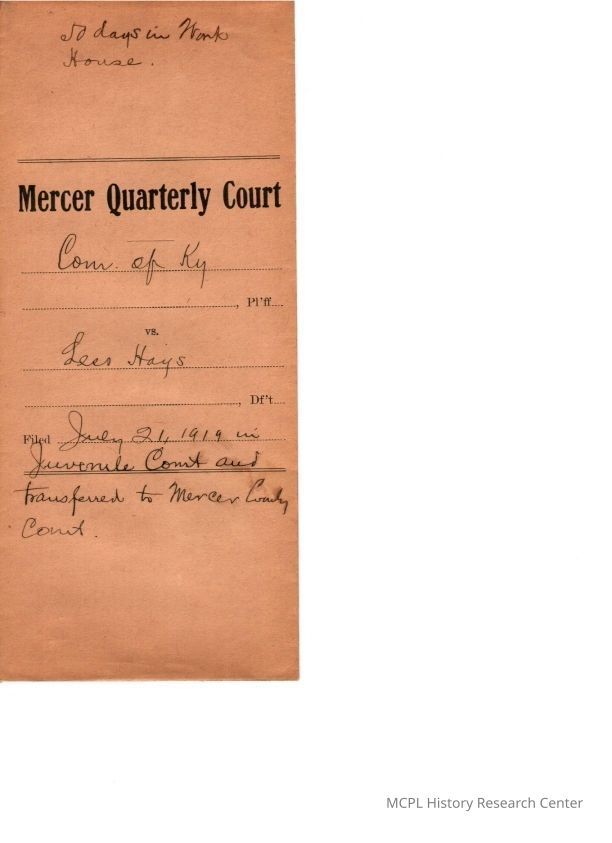 50 days in Work
House.
Mercer Quarterly Court
Com. of Ky
, Pl'ff
vs.
Lees Hays
, Df't
Filed July 21, 1919 in
Juvenile Court and
transferred to Mercer County
Court.
MCPL History Research Center